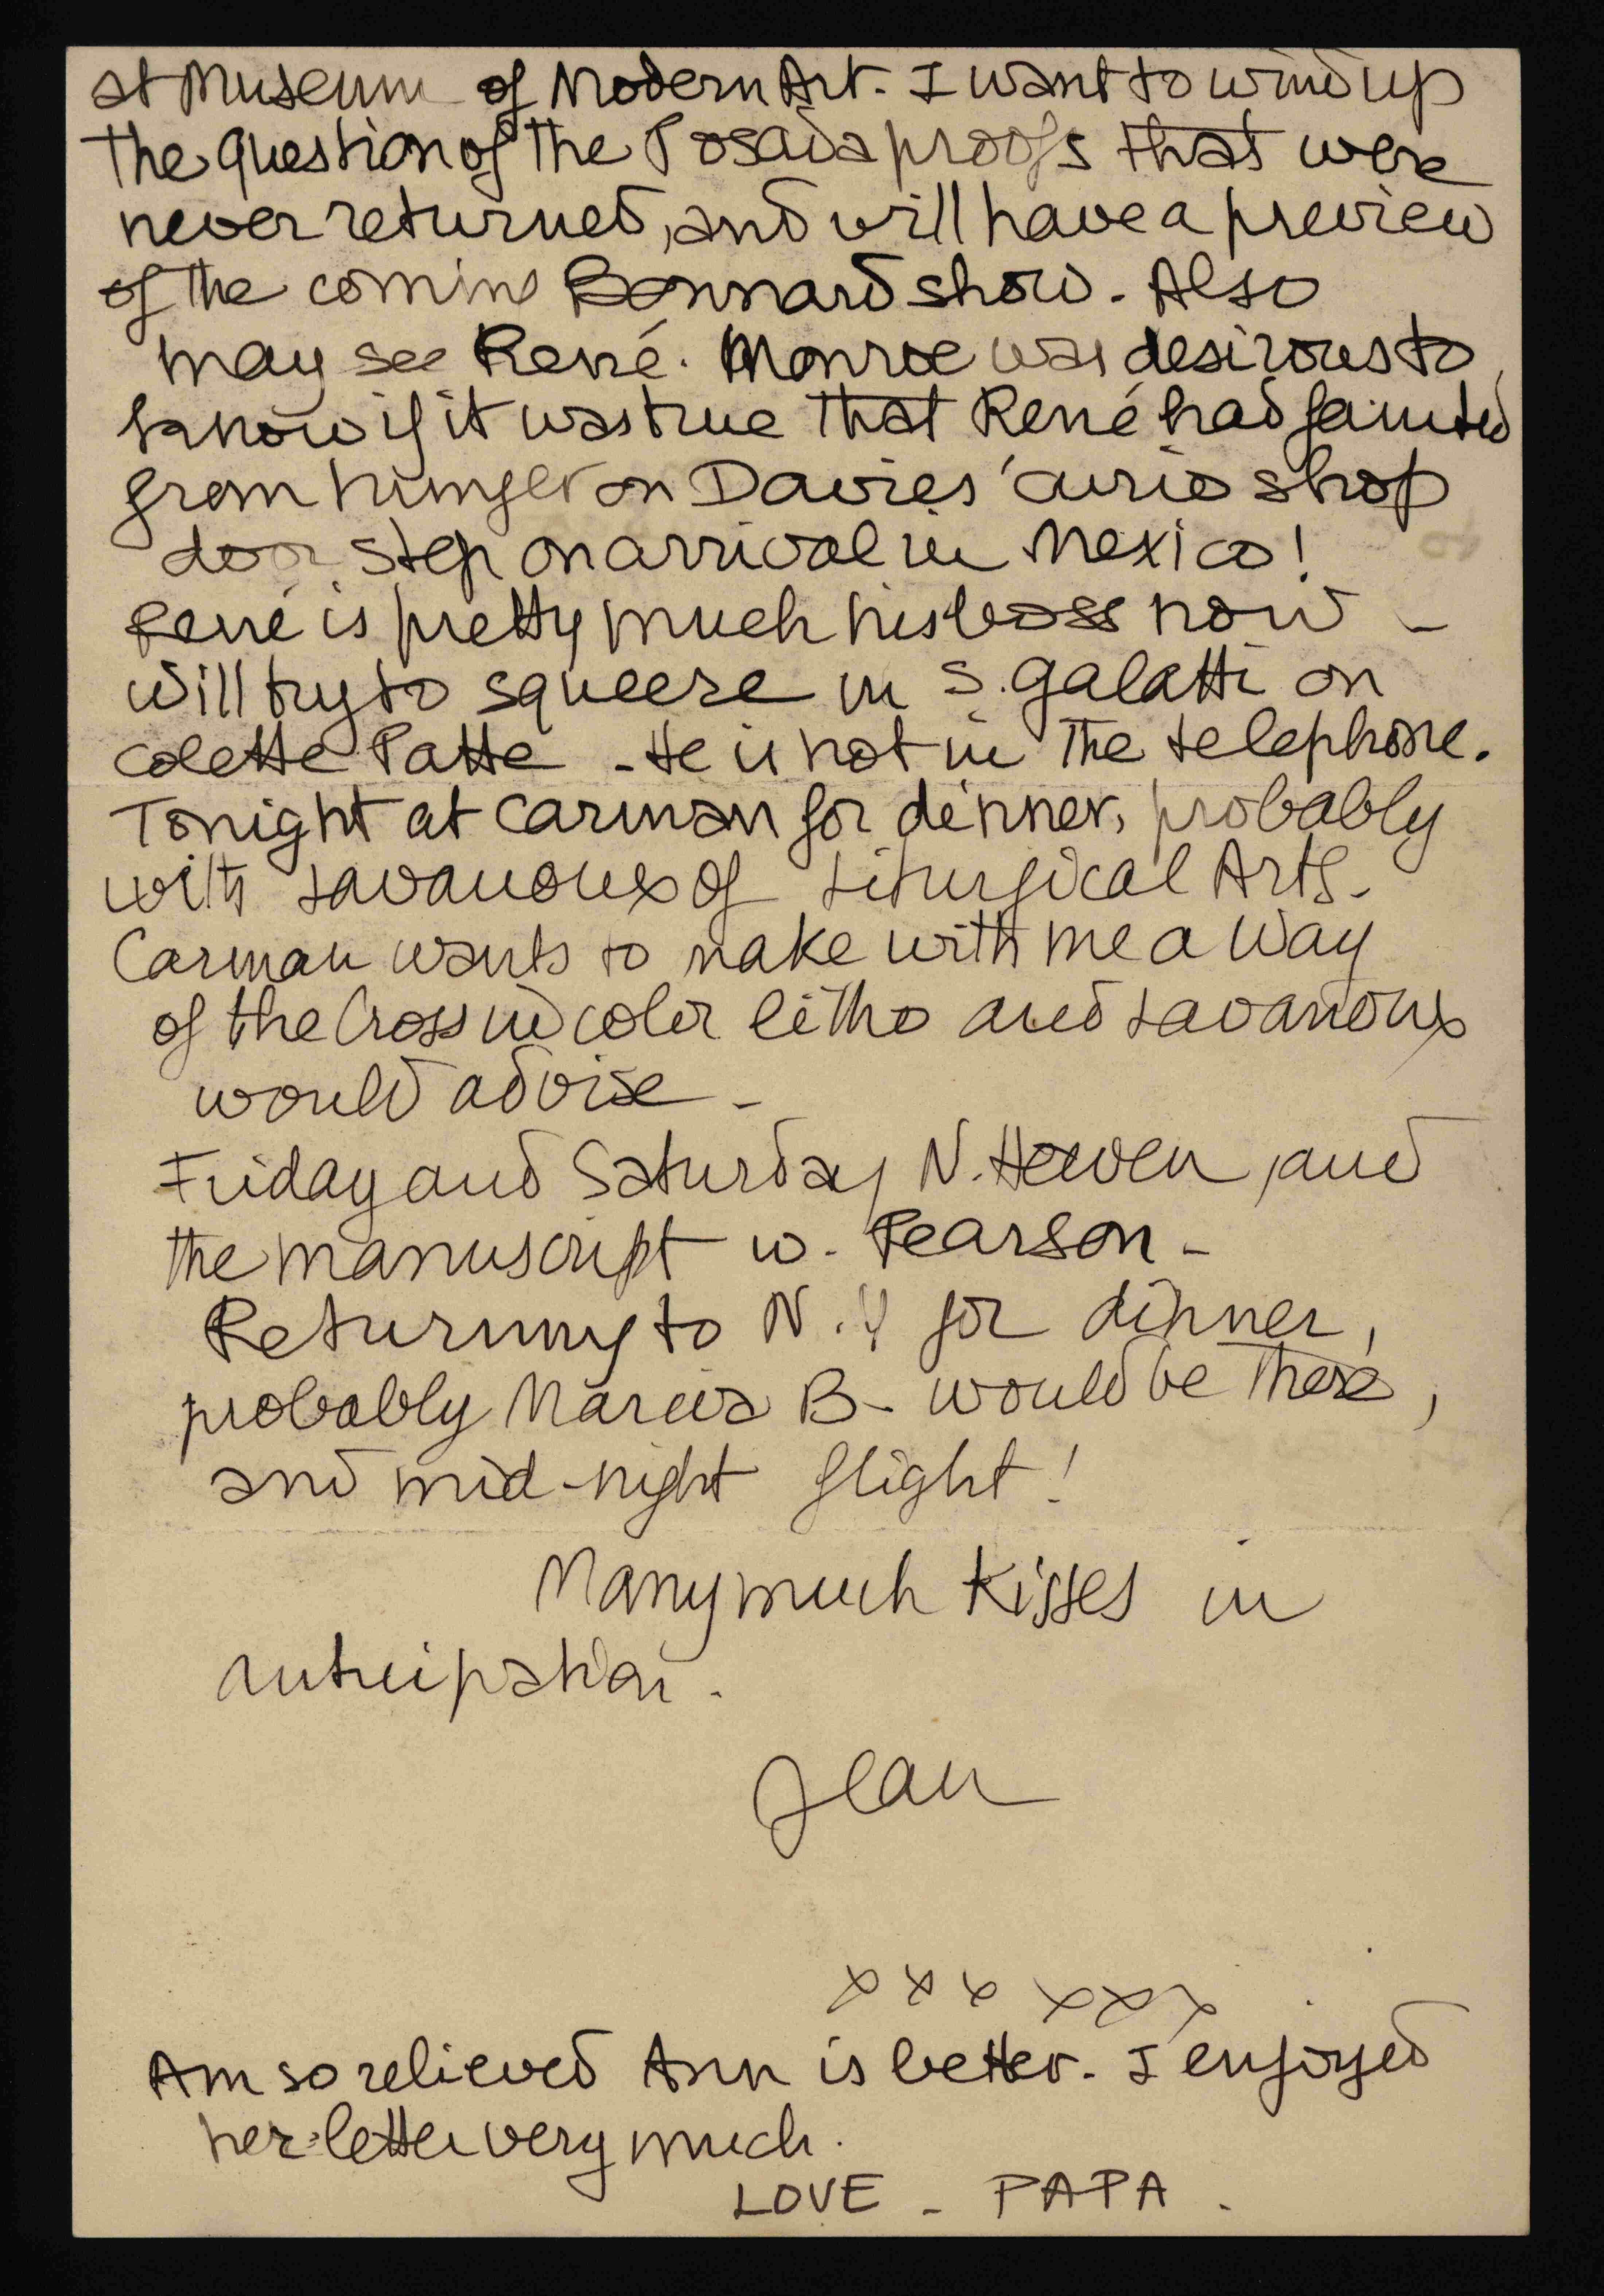 at Museum of Modern Art. I want to wind up
the question of the Posada proofs that were
never returned, and will have a preview
of the coming Bonnard show. Also
may see René. Monroe was desirous to
know if it was true that René had fainted
from hunger on Davies' curio shop
door step on arrival in Mexico!
René is pretty much his boss now –
will try to squeeze in S. Galatti on
Colette Patte – He is not in the telephone.
Tonight at Carman for dinner, probably
with Lavanoux of Liturgical Arts.
Carman wants to make with me a Way
of the Cross in color litho and Lavanoux
would advise –
Friday and Saturday N. Heaven, and
the manuscript w. Pearson –
Returning to N.Y for dinner,
probably Marcia B. would be there,
and mid-night flight!
Many much kisses in
anticipation.
Jean
x x x x x x
Am so relieved Ann is better. I enjoyed
her letter very much.
LOVE – PAPA.